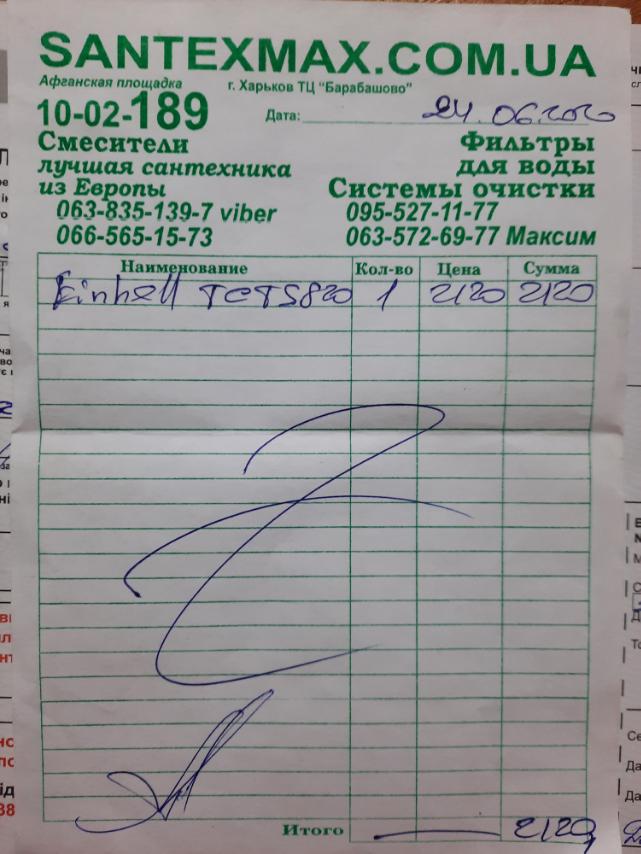 SANTEXMAX.COM.UA
Афганская площадка г. Харьков ТЦ "Барабашово"
10-02-189 Дата: 24.06.2020
Смесители
лучшая сантехника
из Европы
063-835-139-7 viber
066-565-15-73
Фильтры
для воды
Системы очистки
095-527-11-77
063-572-69-77 Максим
Наименование Кол-во Цена Сумма
Einhell TCTS820 1 2120 2120
Итого 2120